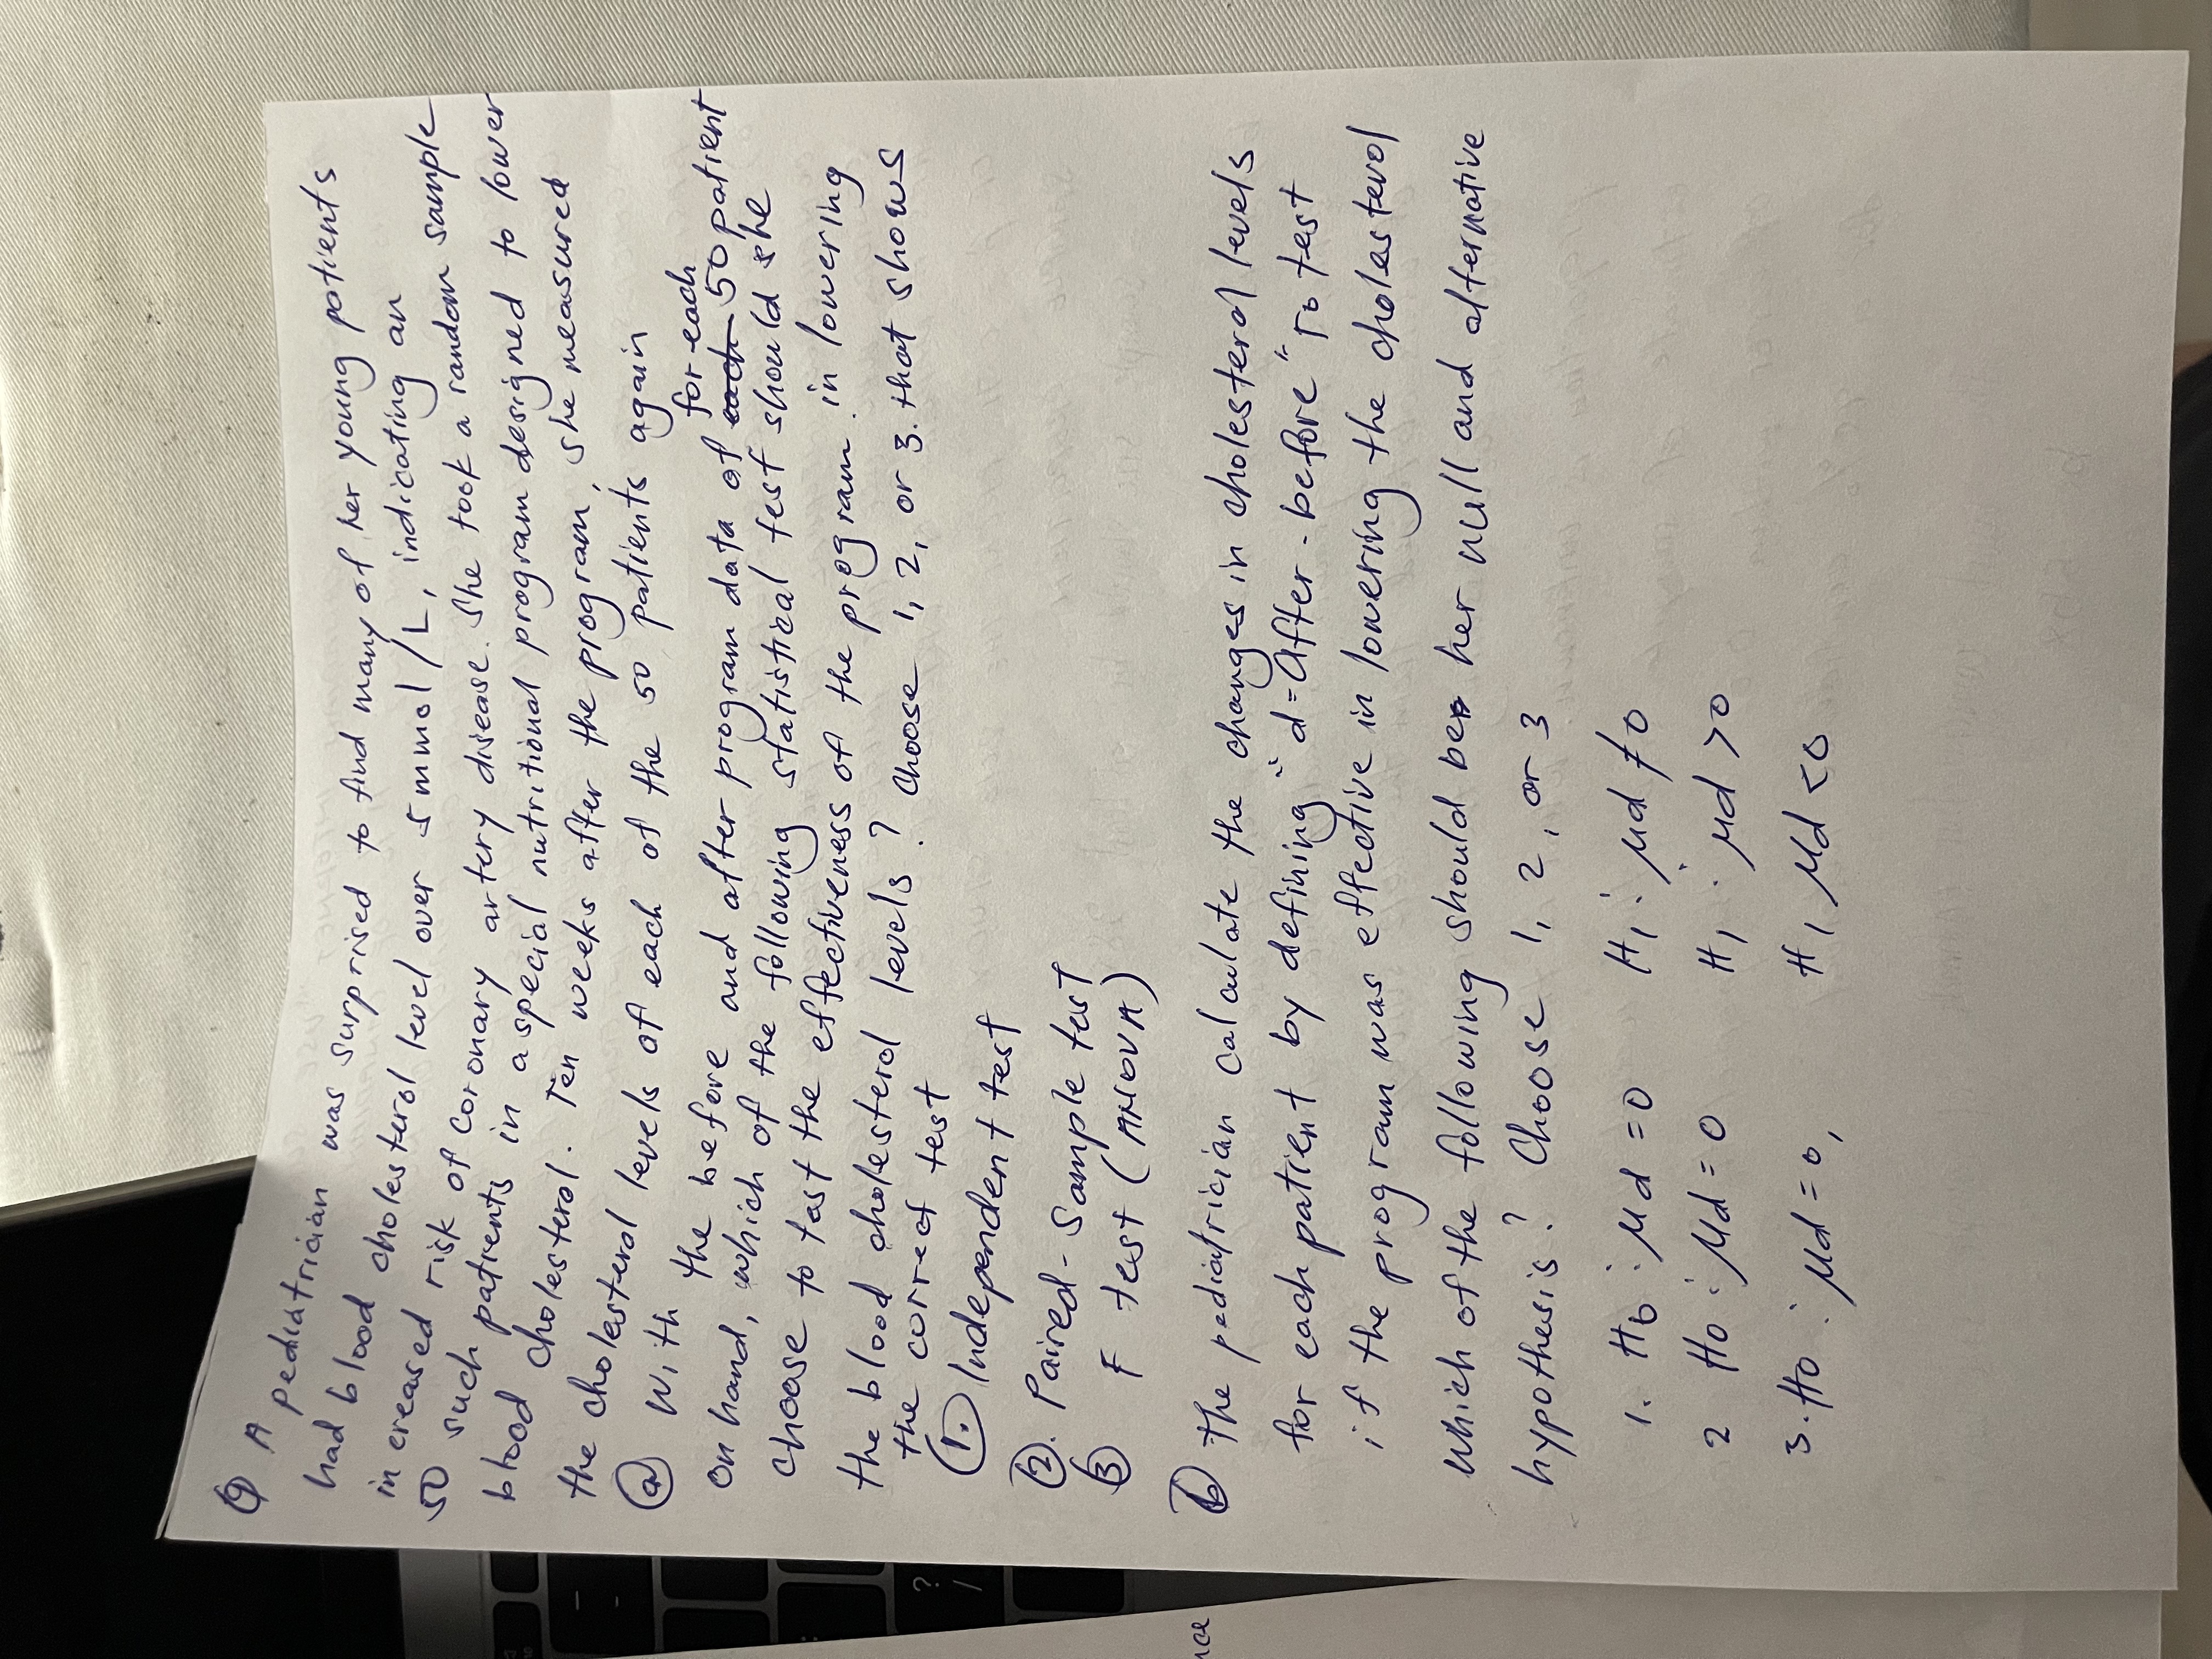 Q A pediatrician was surprised to find many of her young patients
had blood cholesterol level over 5 mmol/L, indicating an
increased risk of coronary artery disease. She took a random sample
50 such patients in a special nutritional program designed to lower
blood cholesterol. Ten weeks after the program, she measured
the cholesterol levels of each of the 50 patients again
a With the before and after program data of each for each 50 patient
on hand, which of the following statistical test should she
choose to tast the effectiveness of the program in lowering
the blood cholesterol levels? Choose 1, 2, or 3. that shows
the correct test
1. Independent test
2. Paired-Sample test
3 F test (ANOVA)
b The pediatrician calculate the changes in cholesterol levels
for each patient by defining "d=after-before" To test
if the program was effective in lowering the cholesterol
which of the following should be her null and alternative
hypothesis? Choose 1, 2, or 3
1. H0: μd=0 H1: μd≠0
2 H0: μd=0 H1: μd>0
3. H0: μd=0, H1 μd<0
?
/
nce